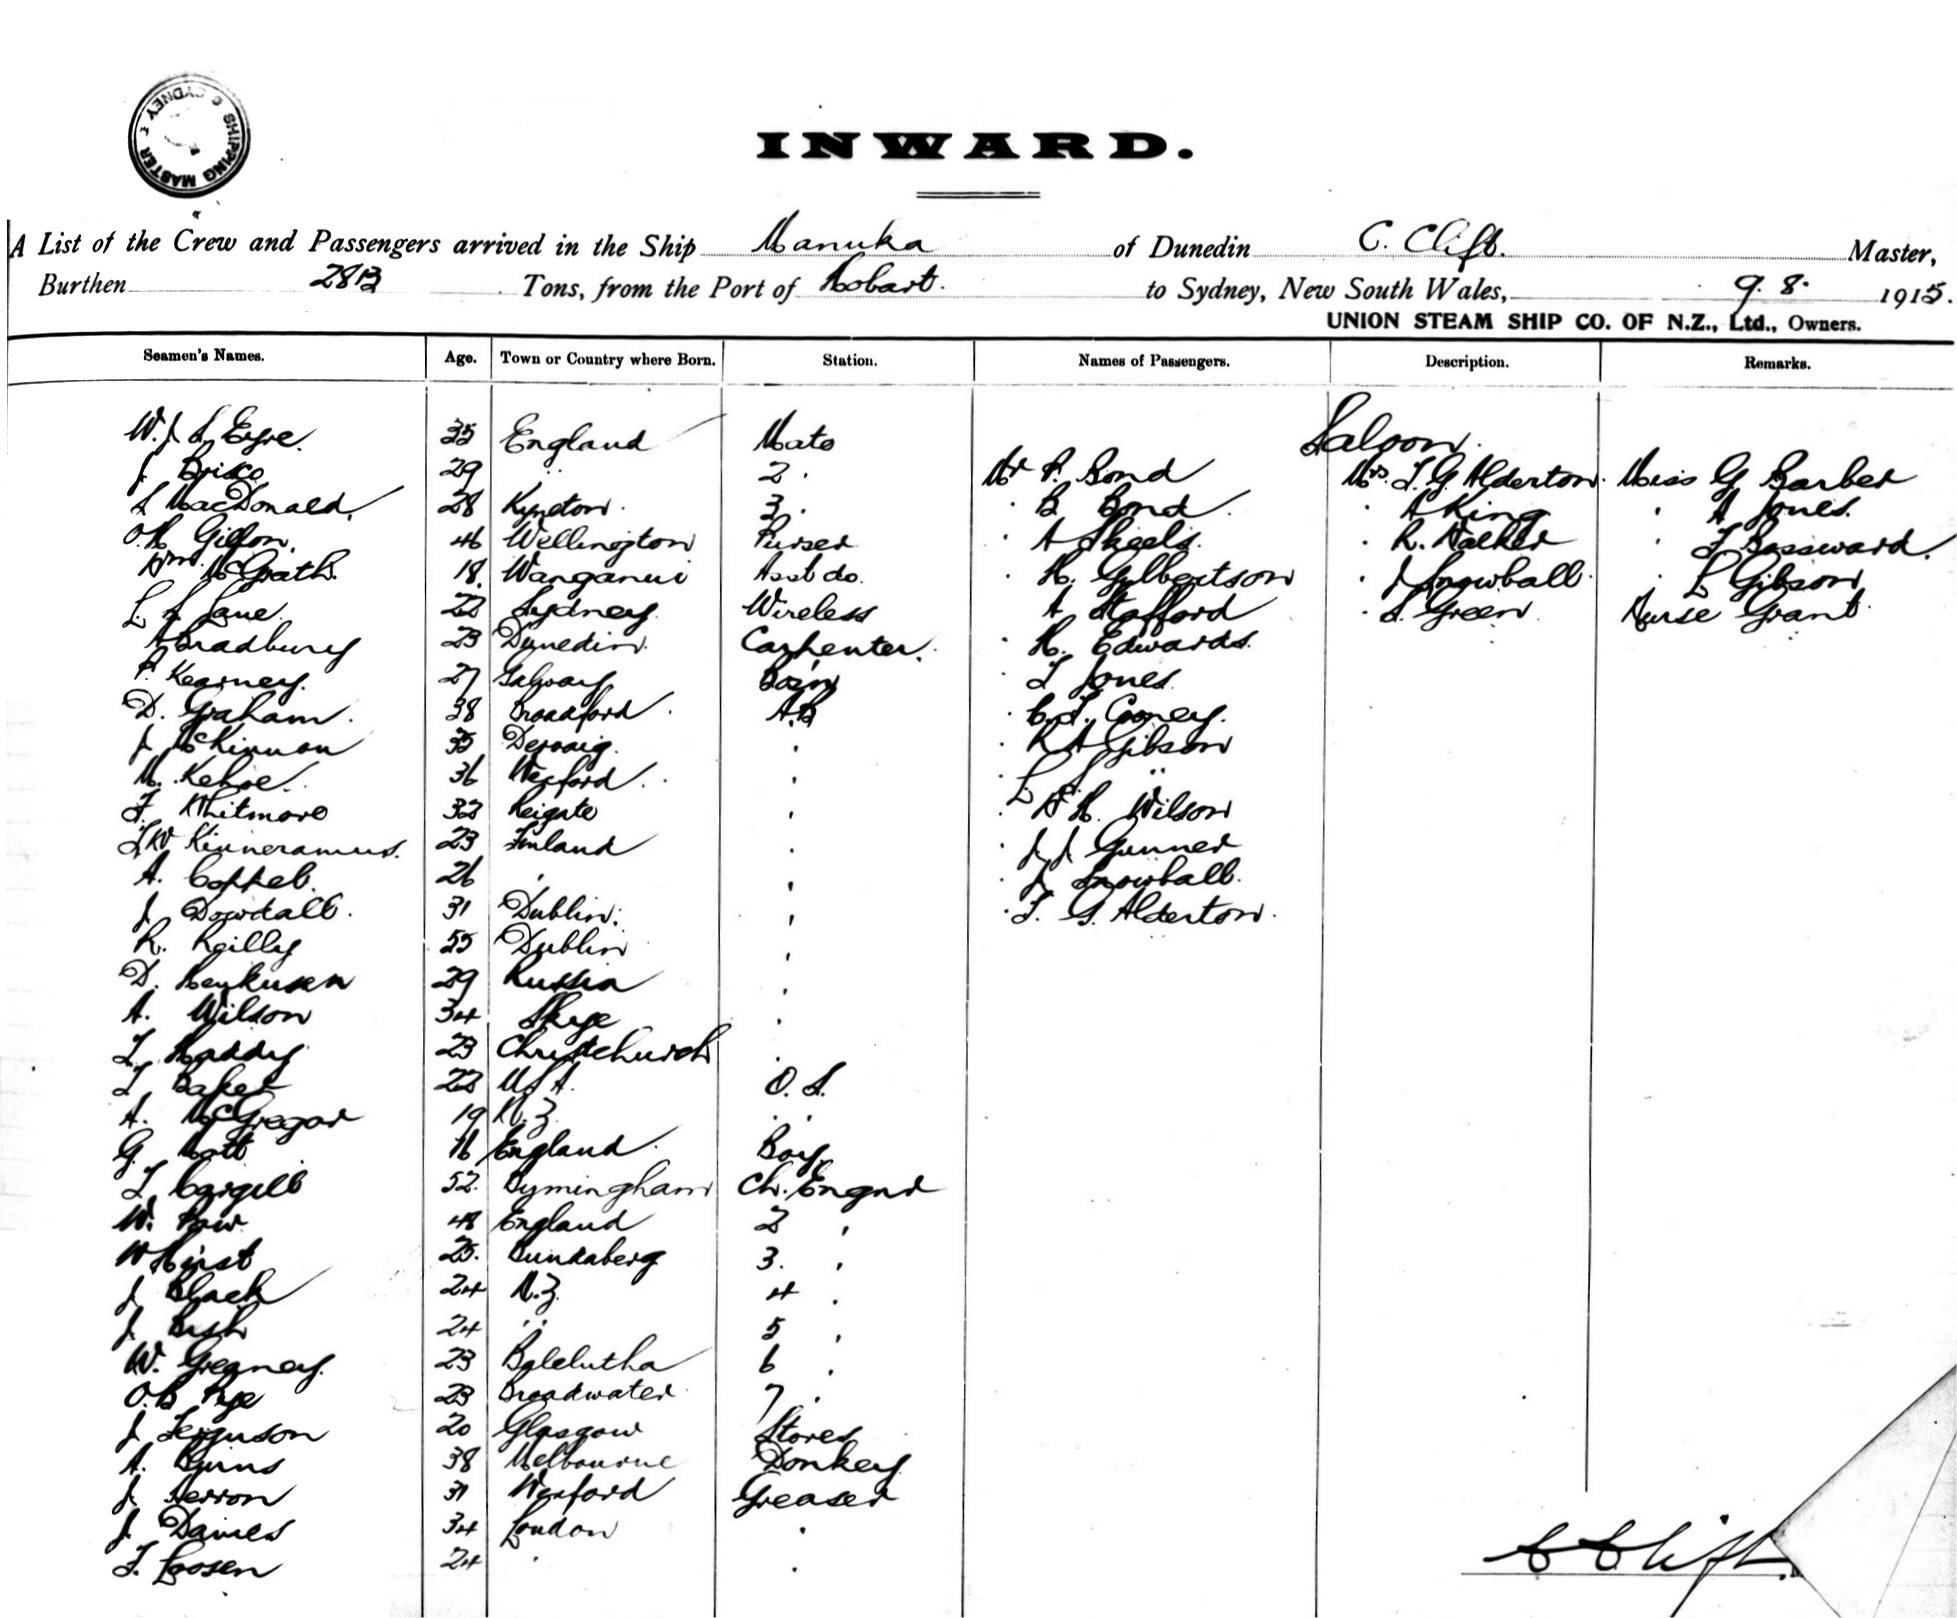 SHIPPING MASTER SYDNEY
INWARD.
A List of the Crew and Passengers arrived in the Ship Manuka of Dunedin C. Clift. Master,
Burthen 2813 Tons, from the Port of Hobart. to Sydney, New South Wales, 9. 8. 1915.
UNION STEAM SHIP CO. OF N.Z., Ltd., Owners.
Seamen's Names. Age. Town or Country where Born. Station. Names of Passengers. Description. Remarks.
Saloon.
W. J. S. Eyre. 35 England Mate
J. Brisco 29 " 2 . Mr P. Bond Mrs. T. G. Alderton. Miss G Barber
MacDonald. 28 Kyneton. 3 . . B Bond . . A King . A Jones.
O. H. Gillon. 46 Wellington Purser . A Skeels. . R. Walker .
Wm McGrath. 18. Wanganui Asst do. . H. Gylbertson . J Snowball . L Gibson
L. S. Lane. 22 Sydney. Wireless . A Stafford . S. Green Nurse Grant.
A Bradbury 23 Dunedin. Carpenter. . H. Edwards.
P. Kearney. 27 Galway Bos'n . T Jones
D. Graham. 38 Broadford. A.B . C. J. Cooney.
J McKinnon 35 Dervaig. . . R A Gibson
M. Kehoe. 36 Wexford. . . L S "
F. Whitmore 32 Reigate . . W H. Wilson
23 Finland . . J J Gunner
A. 26 . . . J Snowball.
J Dowdall. 31 Dublin. . . T. G. Alderton.
R. Reilly 55 Dublin .
D. 29 Russia .
A. Wilson 34 Skye .
T. Haddy 23 Christchurch .
T Baker 22 U S A. O. S.
A. McGregor 19 N. Z. . .
G. Mott 16 England. Boy.
T Cargill 52. Bymingham Ch. Engnr
W. Paw 48 England 2 "
W Hirst 25. Bundaberg 3. "
J Black 24 N. Z. 4 .
J. Bish 24 " " 5 "
W. Greaney. 23 Balclutha 6 .
O. B Pye 23 Broadwater 7 .
J Ferguson 20 Glasgow Stores
A. Byrns 38 Melbourne Donkey
J. Herron 31 Wexford Greaser
J. Davies 34 London .
T. Loosen 24 . .
C Clift